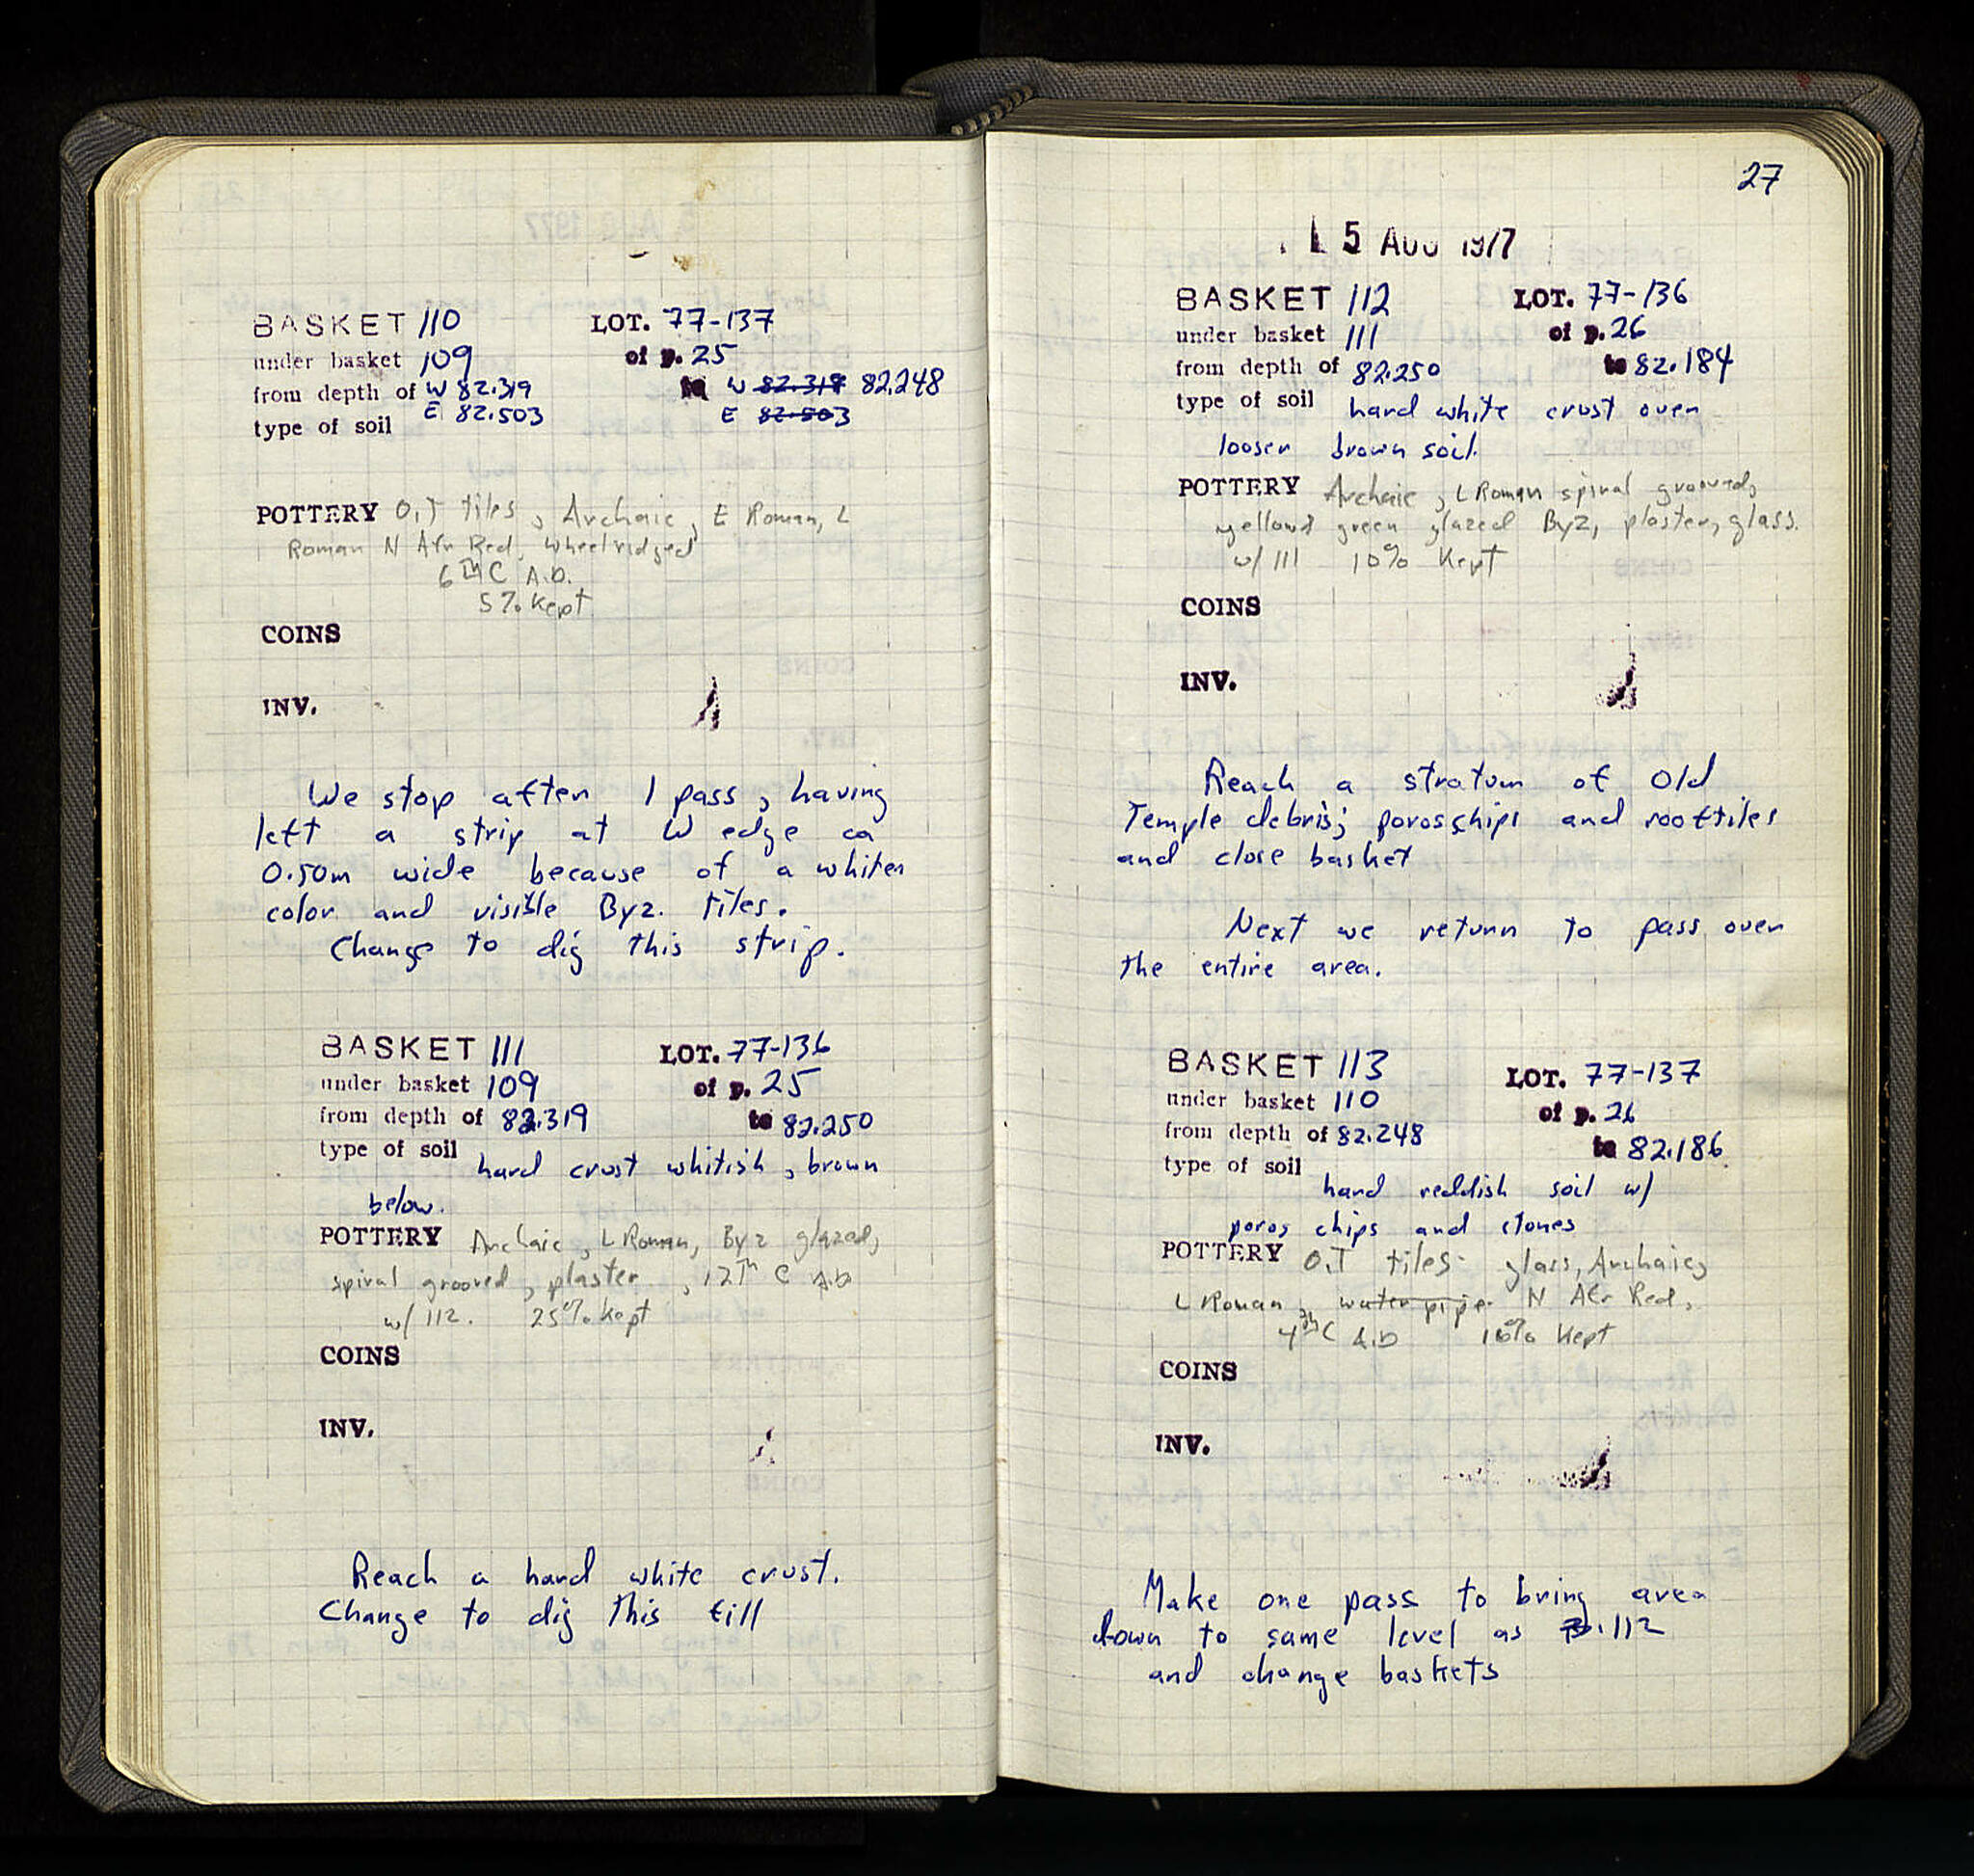 BASKET 110 LOT. 77-137
under basket 109 of p. 25
from depth of W 82.319 to W 82.319 82.248
E 82.503 E 82.503
type of soil
POTTERY O.T tiles, Archaic, E Roman, L
Roman N Afr Red, wheelridged
6TH C A.D.
5% Kept
COINS
INV.
We stop after 1 pass, having
left a strip at W edge ca
0.50m wide because of a whiter
color and visible Byz. tiles.
Change to dig this strip.
BASKET 111 LOT. 77-136
under basket 109 of p. 25
from depth of 82.319 to 82.250
type of soil hard crust whitish, brown
below.
POTTERY Archaic, L Roman, Byz glazed,
spiral grooved, plaster, 12Th C A.D
w/ 112. 25% Kept
COINS
INV.
Reach a hard white crust.
Change to dig this fill
27
15 AUG 1977
BASKET 112 LOT. 77-136
under basket 111 of p. 26
from depth of 82.250 to 82.184
type of soil hard white crust over
looser brown soil.
POTTERY Archaic, L Roman spiral grooved,
yellow green glazed Byz, plaster, glass.
w/ 111 10% Kept
COINS
INV.
Reach a stratum of Old
Temple debris; poros chips and rooftiles
and close basket
Next we return to pass over
the entire area.
BASKET 113 LOT. 77-137
under basket 110 of p. 26
from depth of 82.248 to 82.186
type of soil
hard reddish soil w/
poros chips and stones
POTTERY O.T tiles glass, Archaic,
L Roman, water pipe. N Afr Red,
4th C A.D 10% Kept
COINS
INV.
Make one pass to bring area
down to same level as B.112
and change baskets